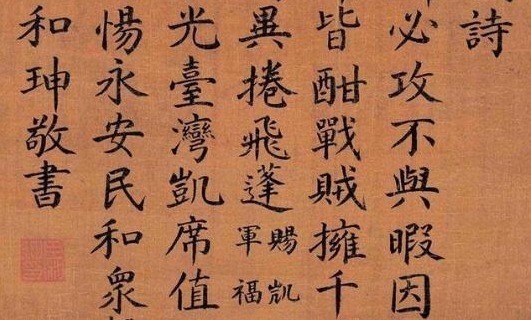 詩
必攻不與暇因
皆酣戰賊擁千
異捲飛蓬
賜凱
軍福
光臺灣凱席值
惕永安民和衆
和珅敬書